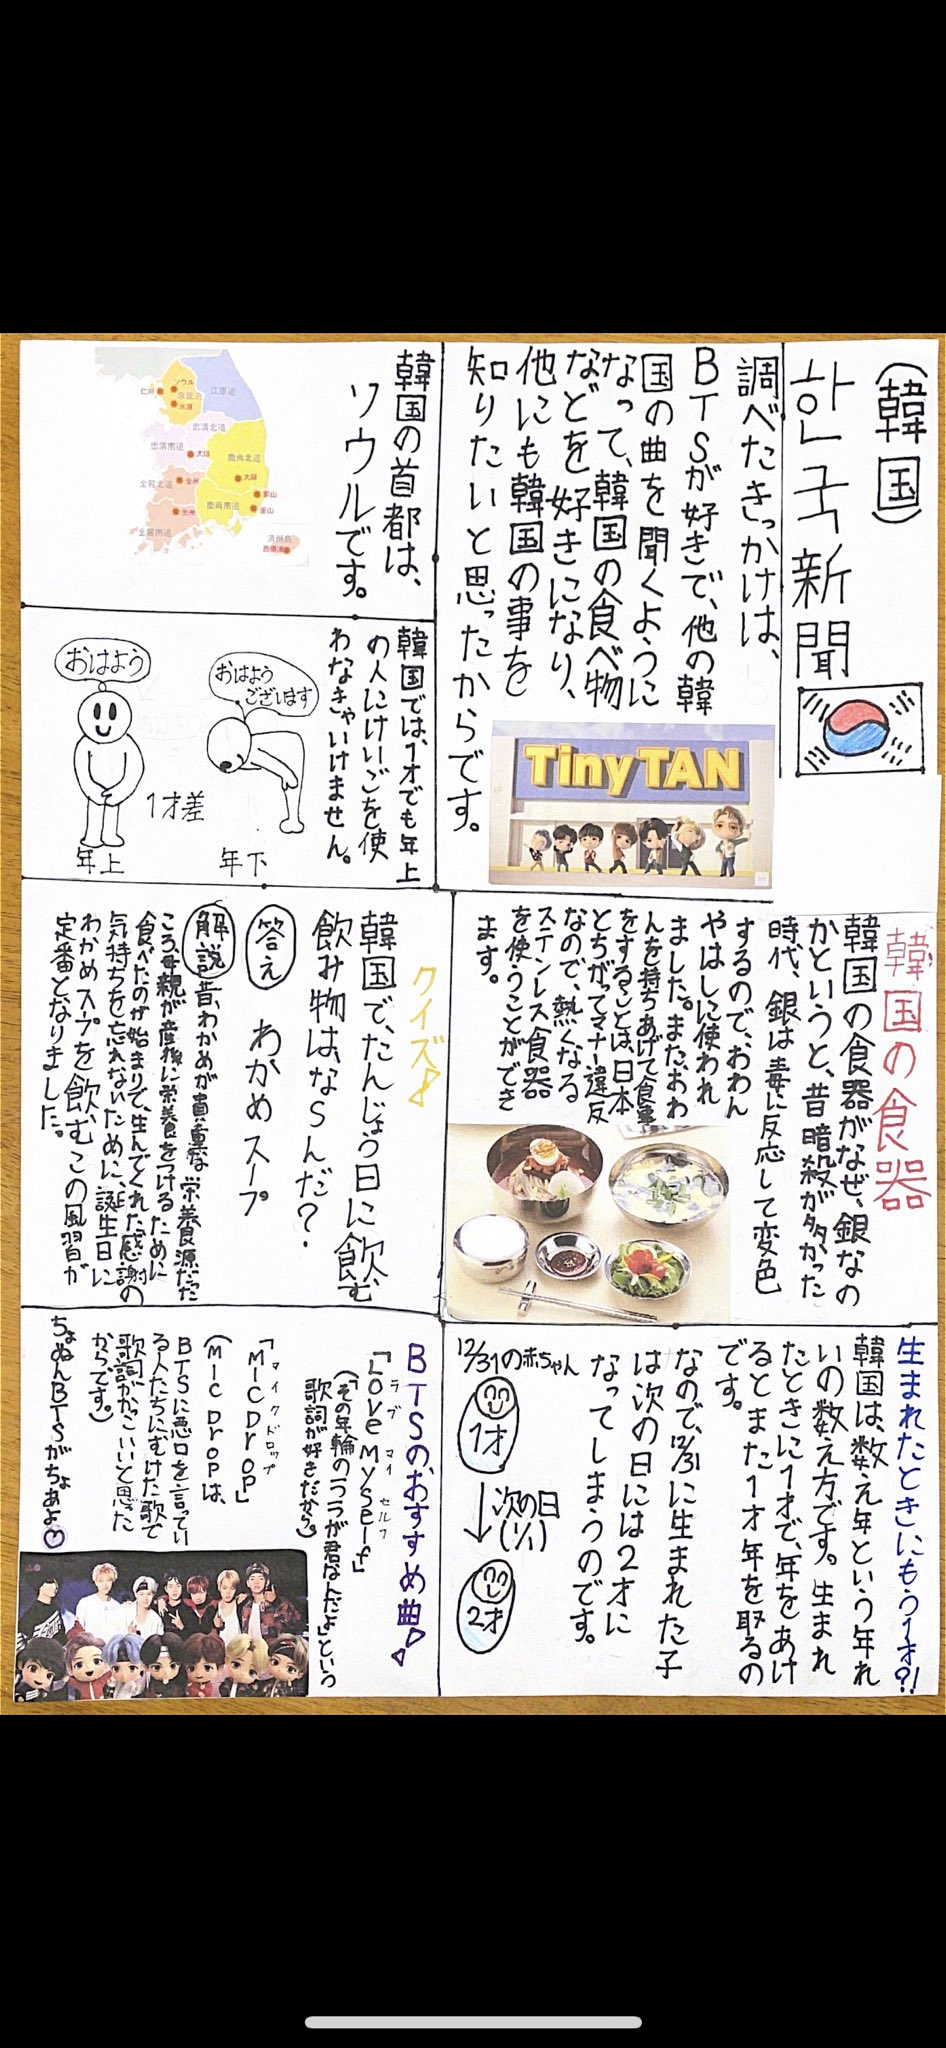 (韓国)
한국新聞
調べたきっかけは、
BTSが好きで、他の韓
国の曲を聞くように
なって、韓国の食べ物
などを好きになり、
他にも韓国の事を
知りたいと思ったからです。
TinyTAN
韓国の首都は、
ソウルです。
ソウル
仁川
京畿道
水原
江原道
忠清北道
忠清南道
大田
慶尚北道
全羅北道
全州
大邱
慶尚南道
釜山
光州
全羅南道
済州島
西帰浦
韓国では、1才でも年上
の人にけいごを使
わなきゃいけません。
おはよう
ございます
おはよう
1才差
年下
年上
韓国の食器
韓国の食器がなぜ、銀なの
かというと、昔暗殺が多かった
時代、銀は毒に反応して変色
するので、おわん
やはしに使われ
ました。また、おわ
んを持ちあげて食事
をすることは、日本
とちがってマナー違反
なので、熱くなる
ステンレス食器
を使うことができ
ます。
クイズ!
韓国で、たんじょう日に飲む
飲み物は、なSんだ?
答え わかめスープ
解説 昔、わかめが貴重な栄養源だった
ころ、母親が産後に栄養をつけるために
食べたのが始まりで、生んでくれた感謝の
気持ちを忘れないために、誕生日に
わかめスープを飲むこの風習が
定番となりました。
生まれたときにもう1才?!
韓国は、数え年という年れ
いの数え方です。生まれ
たときに1才で、年をあけ
るとまた1才年を取るの
です。
なので、12/31に生まれた子
は次の日には2才に
なってしまうのです。
12/31の赤ちゃん
1才
次の日
(1/1)
2才
BTSの、おすすめ曲!
「Love Myself」
ラブ マイ セルフ
(「その年輪の一つ一つが君なんだよ」という
歌詞が好きだから)
「MIC Drop」
マイク ドロップ
(MIC Dropは、
BTSに悪口を言ってい
る人たちにむけた歌で
歌詞がかっこいいと思った
からです。)
ちょぬんBTSがちょあよ